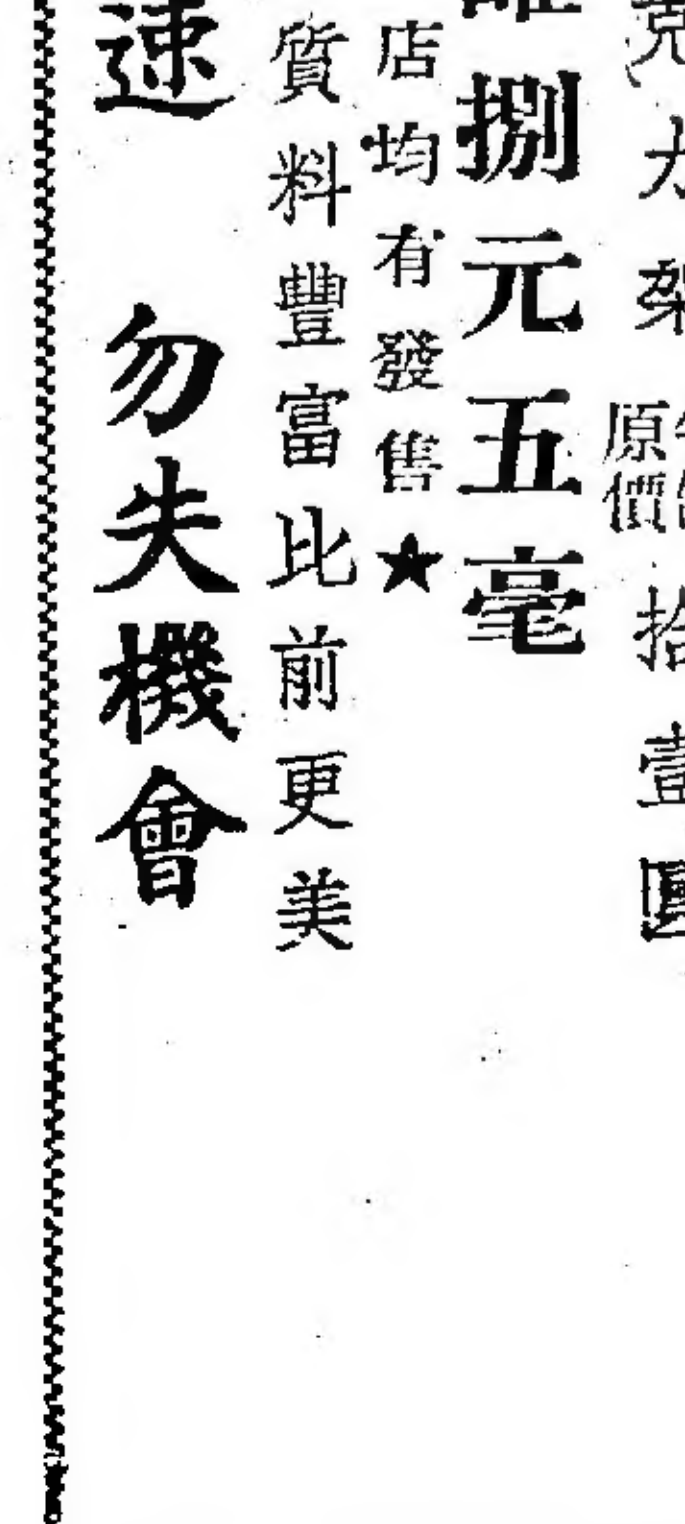 克力架
原價
拾壹圓
捌元五毫
店均有發售★
質料豐富比前更美
速 勿失機會